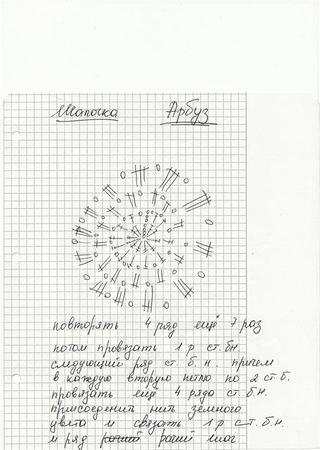 Шапочка Арбуз
повторять 4 ряд ещё 7 раз
потом провязать 1 р ст. бн.
следующий ряд ст. б. н. причем
в каждую вторую петлю по 2 ст. б.
провязать ещё 4 ряда ст. б.н.
присоеденить нить земного
цвета и связать 1 р ст. б. н.
и ряд рачий шаг